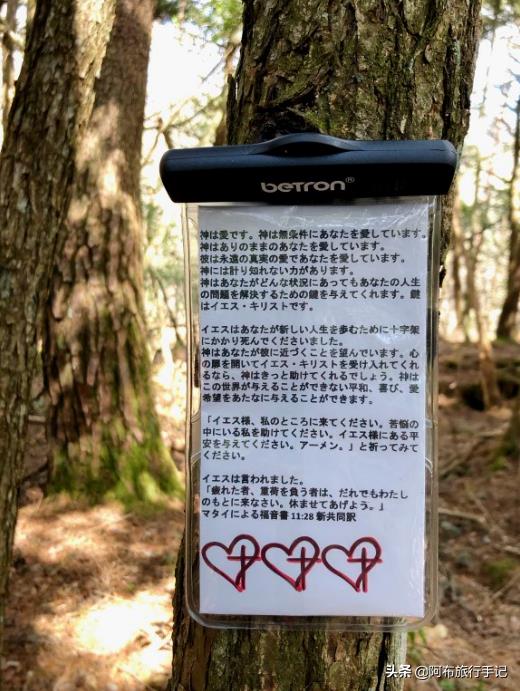 betron®
神は愛です。神は無条件にあなたを愛しています。
神はありのままのあなたを愛しています。
彼は永遠の真実の愛であなたを愛しています。
神には計り知れない力があります。
神はあなたがどんな状況にあってもあなたの人生
の問題を解決するための鍵を与えてくれます。鍵
はイエス・キリストです。
イエスはあなたが新しい人生を歩むために十字架
にかかり死んでくださいました。
神はあなたが彼に近づくことを望んでいます。心
の扉を開いてイエス・キリストを受け入れてくれ
るなら、神はきっと助けてくれるでしょう。神は
この世界が与えることができない平和、喜び、愛
希望をあたなに与えることができます。
「イエス様、私のところに来てください。苦悩の
中にいる私を助けてください。イエス様にある平
安を与えてください。アーメン。」と祈ってみて
ください。
イエスは言われました。
「疲れた者、重荷を負う者は、だれでもわたし
のもとに来なさい。休ませてあげよう。」
マタイによる福音書 11:28 新共同訳
头条 @阿布旅行手记